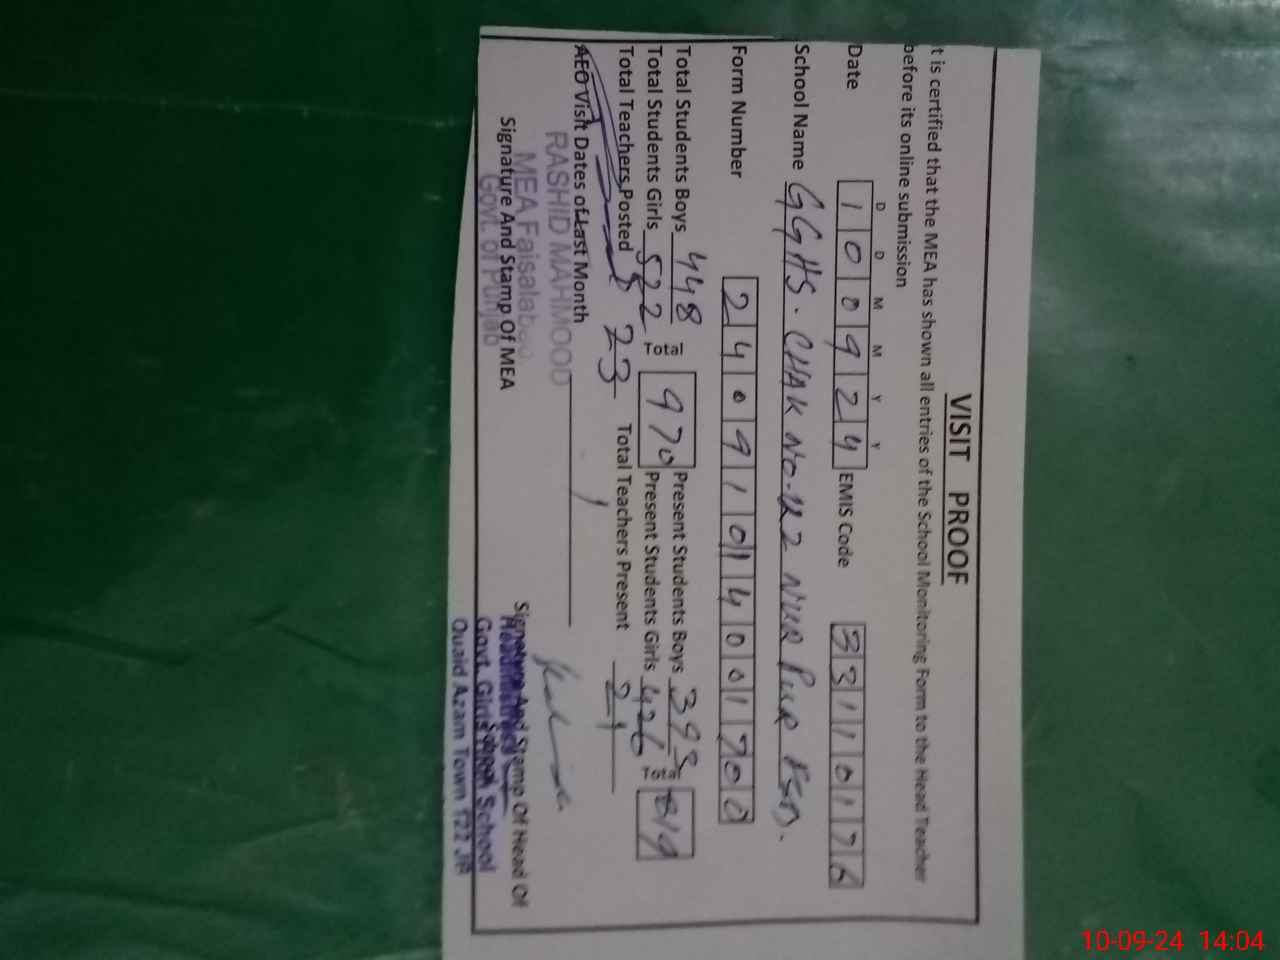 VISIT PROOF
t is certified that the MEA has shown all entries of the School Monitoring Form to the Head Teacher
before its online submission
D D M M Y Y
Date 1 0 0 9 2 4 EMIS Code 3 3 1 1 0 1 7 6
School Name GGHS. CHAK NO. 122 NUR PUR FSD.
Form Number 2 4 0 9 1 0 1 4 0 0 1 7 0 0
Total Students Boys 448 Total 970 Present Students Boys 393 Total 819
Total Students Girls 522 Present Students Girls 426
Total Teachers Posted 23 Total Teachers Present 21
AEO Visit Dates of Last Month
RASHID MAHMOOD
MEA Faisalabad
Govt. of Punjab
Signature And Stamp Of MEA
Signature And Stamp Of Head Of
Headmistress
School
Govt. Girls High School
Quaid Azam Town 122 JB
10-09-24 14:04